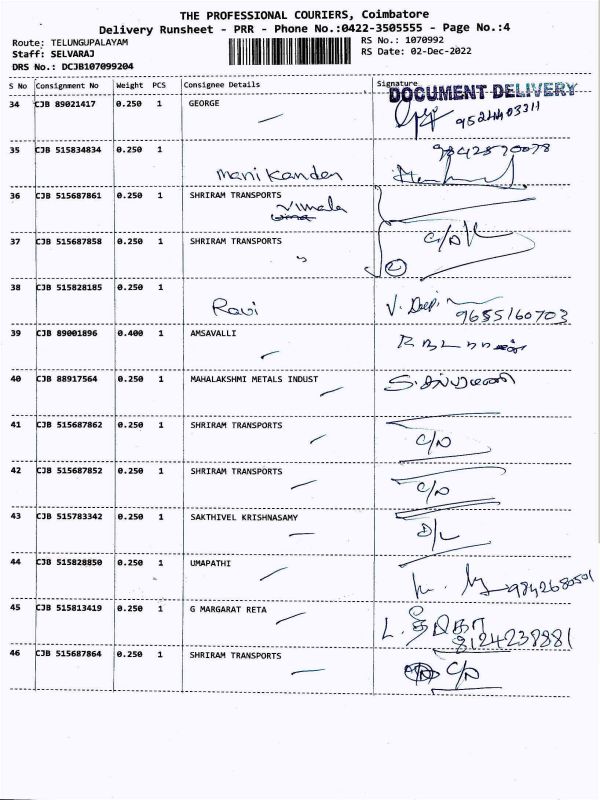 THE PROFESSIONAL COURIERS, Coimbatore
Delivery Runsheet - PRR - Phone No.:0422-3505555 - Page No.:4
Route: TELUNGUPALAYAM
RS No.: 1070992
Staff: SELVARAJ
RS Date: 02-Dec-2022
DRS No.: DCJB107099204
S No Consignment No Weight PCS Consignee Details Signature
DOCUMENT DELIVERY
34 CJB 89021417 0.250 1 GEORGE
35 CJB 515834834 0.250 1
Manikanden
36 CJB 515687861 0.250 1 SHRIRAM TRANSPORTS
Vimala
37 CJB 515687858 0.250 1 SHRIRAM TRANSPORTS
38 CJB 515828185 0.250 1
Ravi
9655160703
39 CJB 89001896 0.400 1 AMSAVALLI
40 CJB 88917564 0.250 1 MAHALAKSHMI METALS INDUST
41 CJB 515687862 0.250 1 SHRIRAM TRANSPORTS
C/D
42 CJB 515687852 0.250 1 SHRIRAM TRANSPORTS
C/D
43 CJB 515783342 0.250 1 SAKTHIVEL KRISHNASAMY
D/L
44 CJB 515828850 0.250 1 UMAPATHI
45 CJB 515813419 0.250 1 G MARGARAT RETA
8124238881
46 CJB 515687864 0.250 1 SHRIRAM TRANSPORTS
C/D